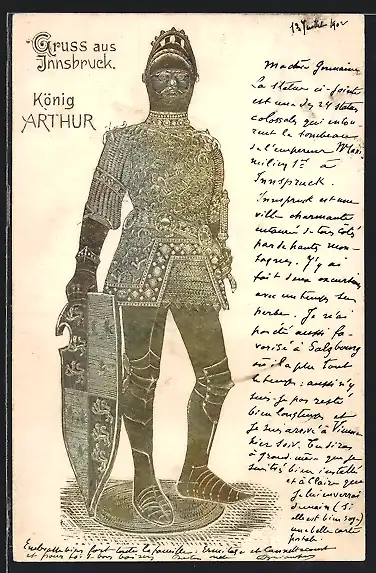 Gruss aus
Innsbruck.
König
ARTHUR
13 Juillet 1902
Ma chère Germaine
La statue ci-jointe
est une des 24 statues
colossales qui entou-
rent le tombeau
de l'empereur Maxi
milien 1er à
Innspruck.
Innspruck est une
ville charmante
entourée de tous cotés
par de hautes mon-
tagnes. J'y ai
fait deux excursions
avec un temps su-
perbe. Je n'ai
pas été aussi fa-
vorisé à Salzbourg
où il a plu tout
le temps; aussi n'y
suis-je pas resté
bien longtemps et
je suis arrivé à Vienne
hier soir. Tu diras
à grand-mère que je
suis très bien installé
et à Claire que
je lui enverrai
demain (si
elle est bien sage)
une belle carte
postale.
Embrasse bien fort toute la famille, Ermitage et
et pour toi